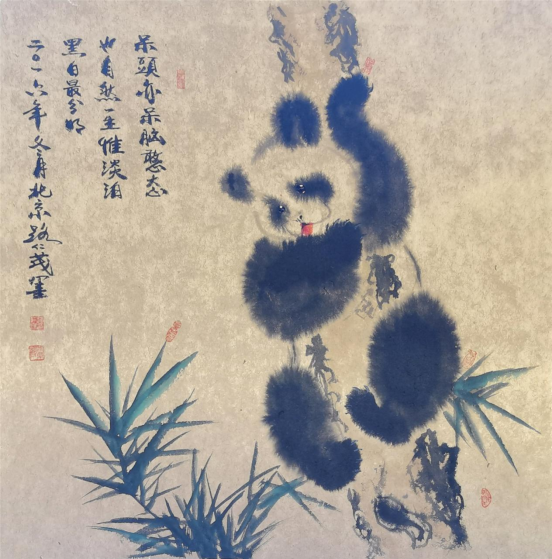 呆頭亦呆脑憨态
也自然一生惟淡泊
黑白最分明
二〇一六年冬月北京路仁茂畫